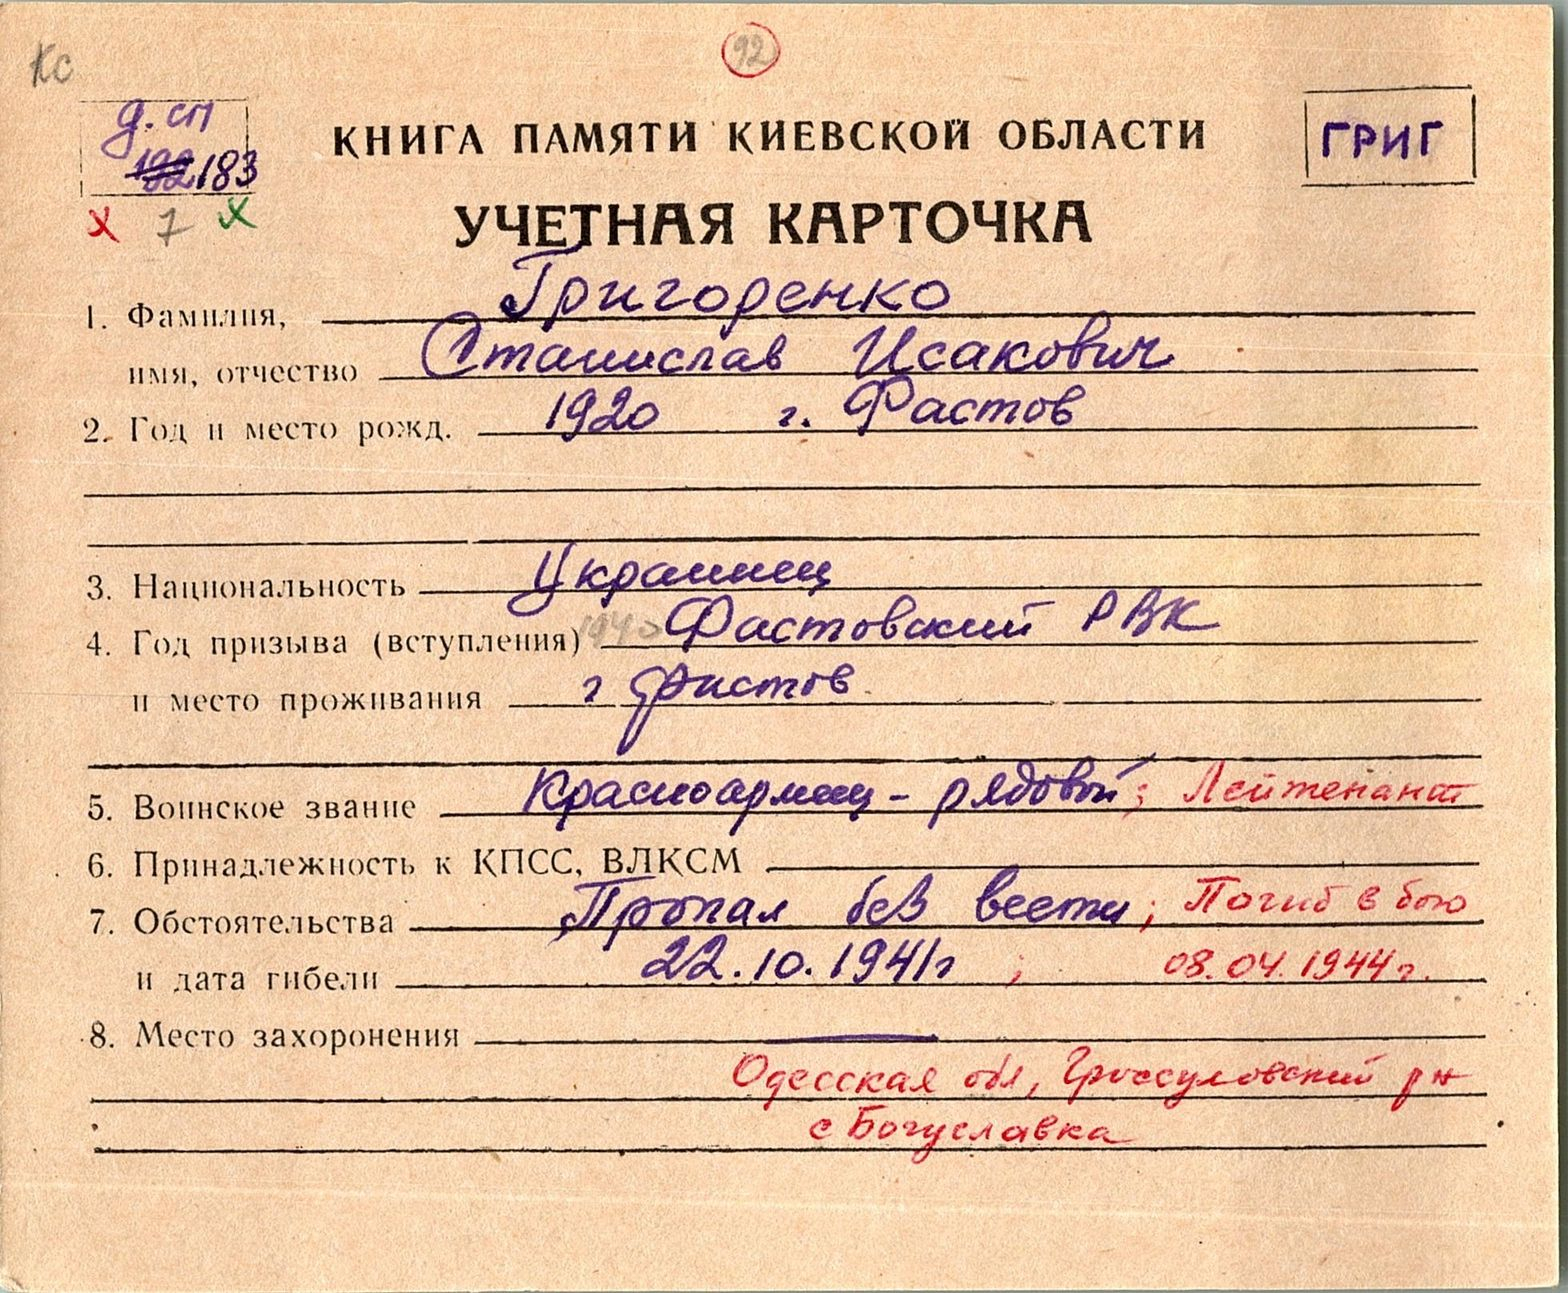 Кс
92
д. сп
183
ГРИГ
х 7 х
КНИГА ПАМЯТИ КИЕВСКОЙ ОБЛАСТИ
УЧЕТНАЯ КАРТОЧКА
1. Фамилия, Григоренко
имя, отчество Станислав Исакович
2. Год и место рожд. 1920 г. Фастов
3. Национальность Украинец
4. Год призыва (вступления) 1940 Фастовский РВК
и место проживания г Фастов
5. Воинское звание красноармеец - рядовой; Лейтенант
6. Принадлежность к КПСС, ВЛКСМ
7. Обстоятельства Пропал без вести; Погиб в бою
и дата гибели 22.10.1941г ; 08.04.1944г.
8. Место захоронения —
Одесская обл, Гроссуловский р-н
с Богуславка